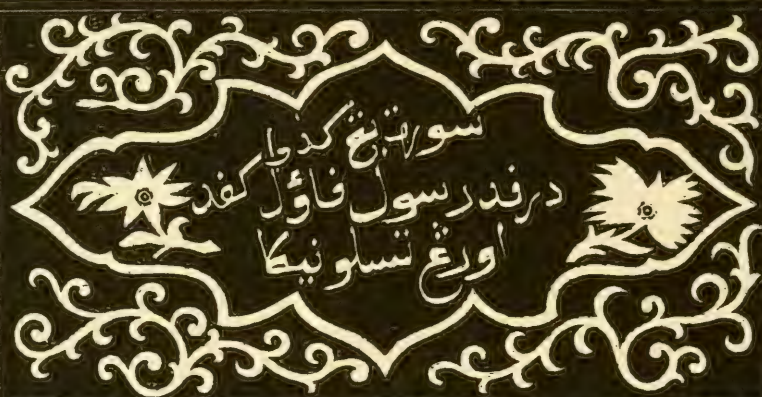 سورة يڠ کدوا
درفد رسول فاؤل کفد
اورڠ تسلونيکا